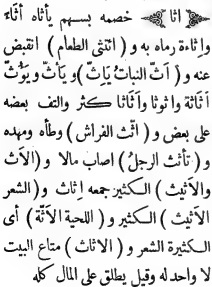 ﴿ اثا ﴾ خصمه بسهم يأثاه أثاءً
واثاءة رماه به و ( انتثى الطعام ) انقبض
عنه و ( أثّ النباتُ يَاثّ ) و يأثّ و يؤُثّ
أثاثة واثوثا وأثاثا كثر والتف بعضه
على بعض و ( اثّث الفراش ) وطأه ومهده
و ( تأثث الرجلُ ) اصاب مالا و ( الأثّ
والأثيث ) الكثير جمعه إثاث و ( الشعر
الأثيث ) الكثير و ( اللحية الأثّة ) أى
الكثيرة الشعر و ( الاثاث ) متاع البيت
لا واحد له وقيل يطلق على المال كله